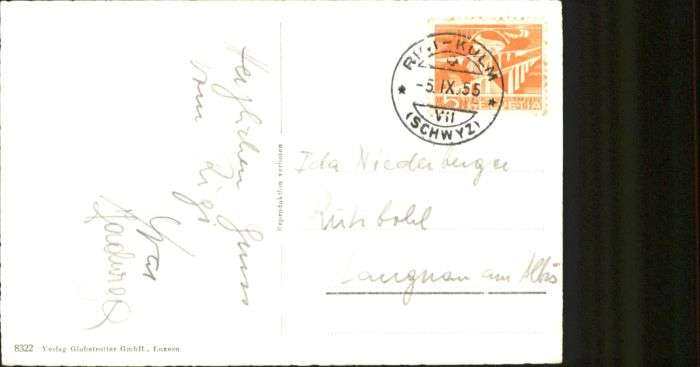 Herzlichen Gruss
vom Rigi
RIGI-KULM
-5.IX.55
VII
(SCHWYZ)
5 HELVETIA
Ida Niederberger
Langnau am Albis
Reproduktion verboten
8322 Verlag Globetrotter GmbH., Luzern